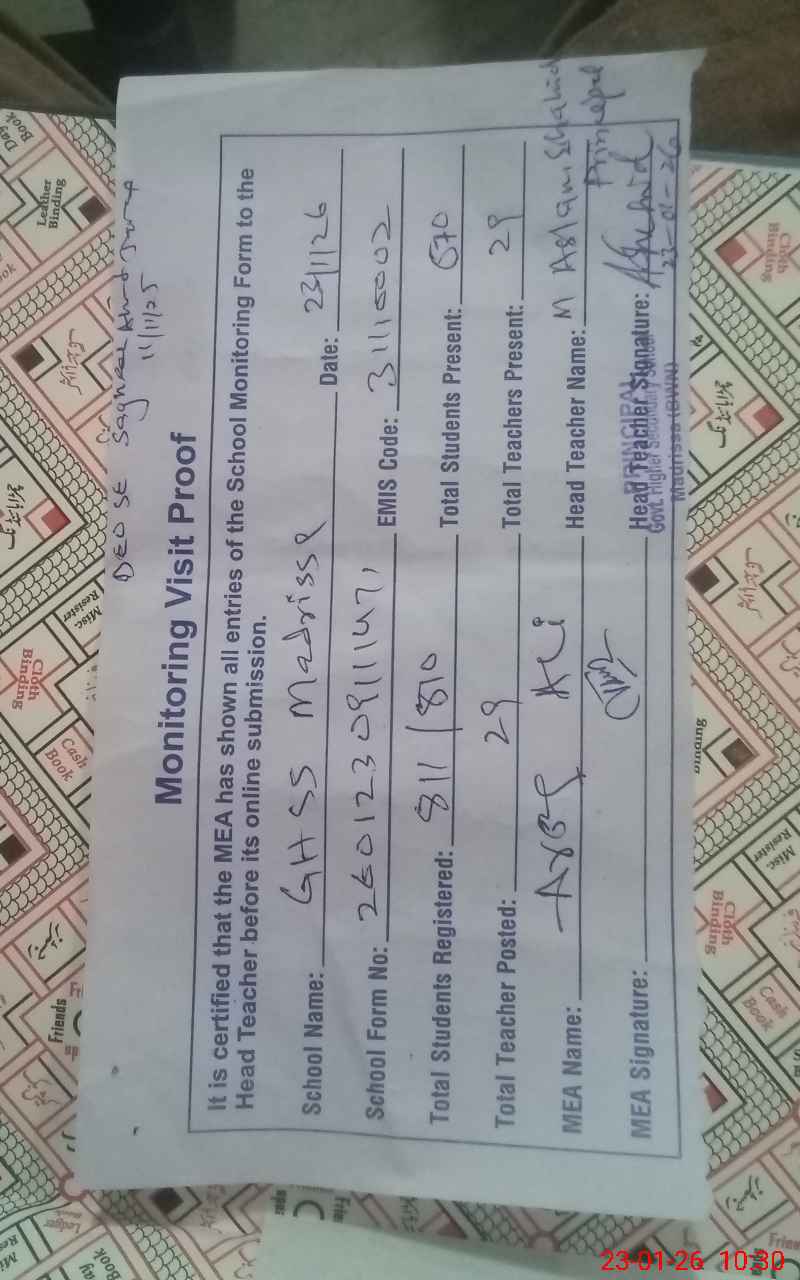 DEO SE Sagheer Ahmad
11/11/25
Monitoring Visit Proof
It is certified that the MEA has shown all entries of the School Monitoring Form to the
Head Teacher before its online submission.
School Name: GHSS Madrissa Date: 23/1/26
School Form No: EMIS Code: 31110002
Total Students Registered: 811/810 Total Students Present: 670
Total Teacher Posted: 29 Total Teachers Present: 29
MEA Name: Ali Head Teacher Name: M Aslam Shahid
Principal
MEA Signature: Head Teacher Signature:
23-01-26
PRINCIPAL
Govt. Higher Secondary School
Madrissa (BWN)
Day Book
Leather Binding
Cloth Binding
Misc. Resister
Cash Book
Cloth Binding
Misc. Resister
Cloth Binding
Cash Book
Friends
Ledger
Day Book
رجسٹر
23-01-26 10:30